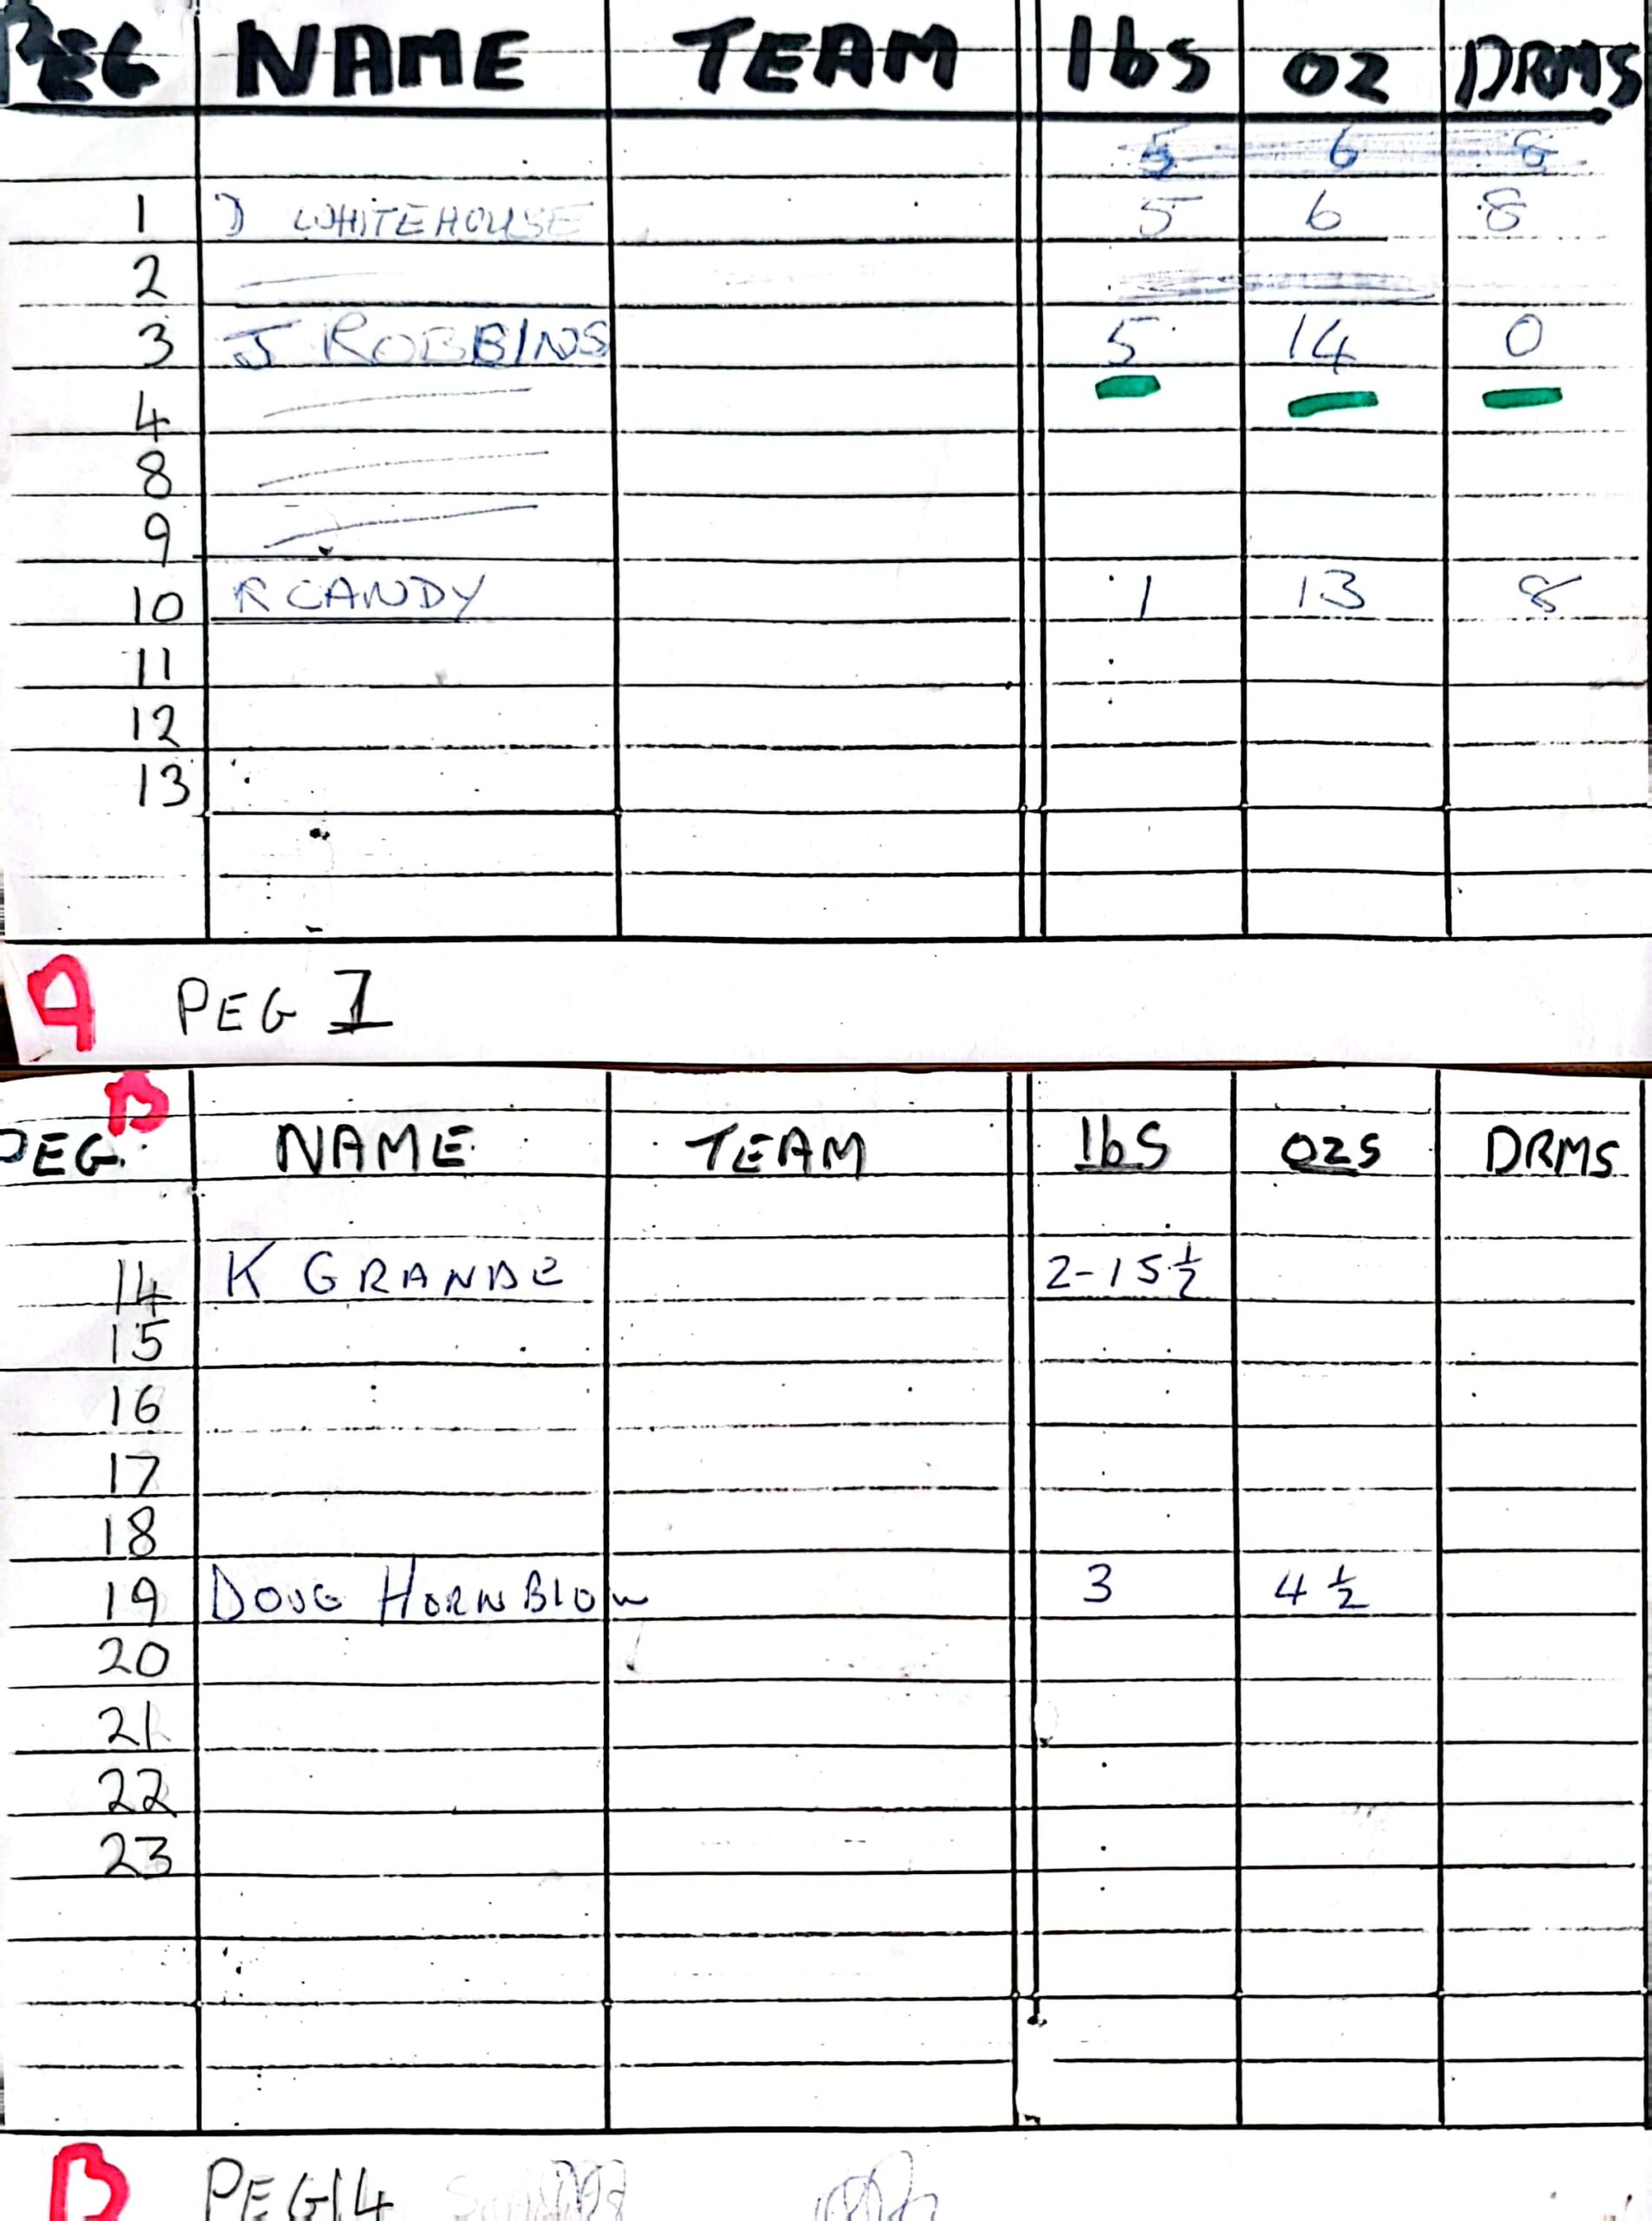 PEG NAME TEAM lbs oz DRMS
5 6 8
1 D WHITEHOUSE 5 6 8
2
3 J ROBBINS 5 14 0
4
8
9
10 R CANDY 1 13 8
11
12
13
A PEG 1
B
PEG. NAME TEAM lbs ozs DRMS
14 K GRANDE 2-15 ½
15
16
17
18
19 DOUG HORNBLOW 3 4 ½
20
21
22
23
B PEG 14